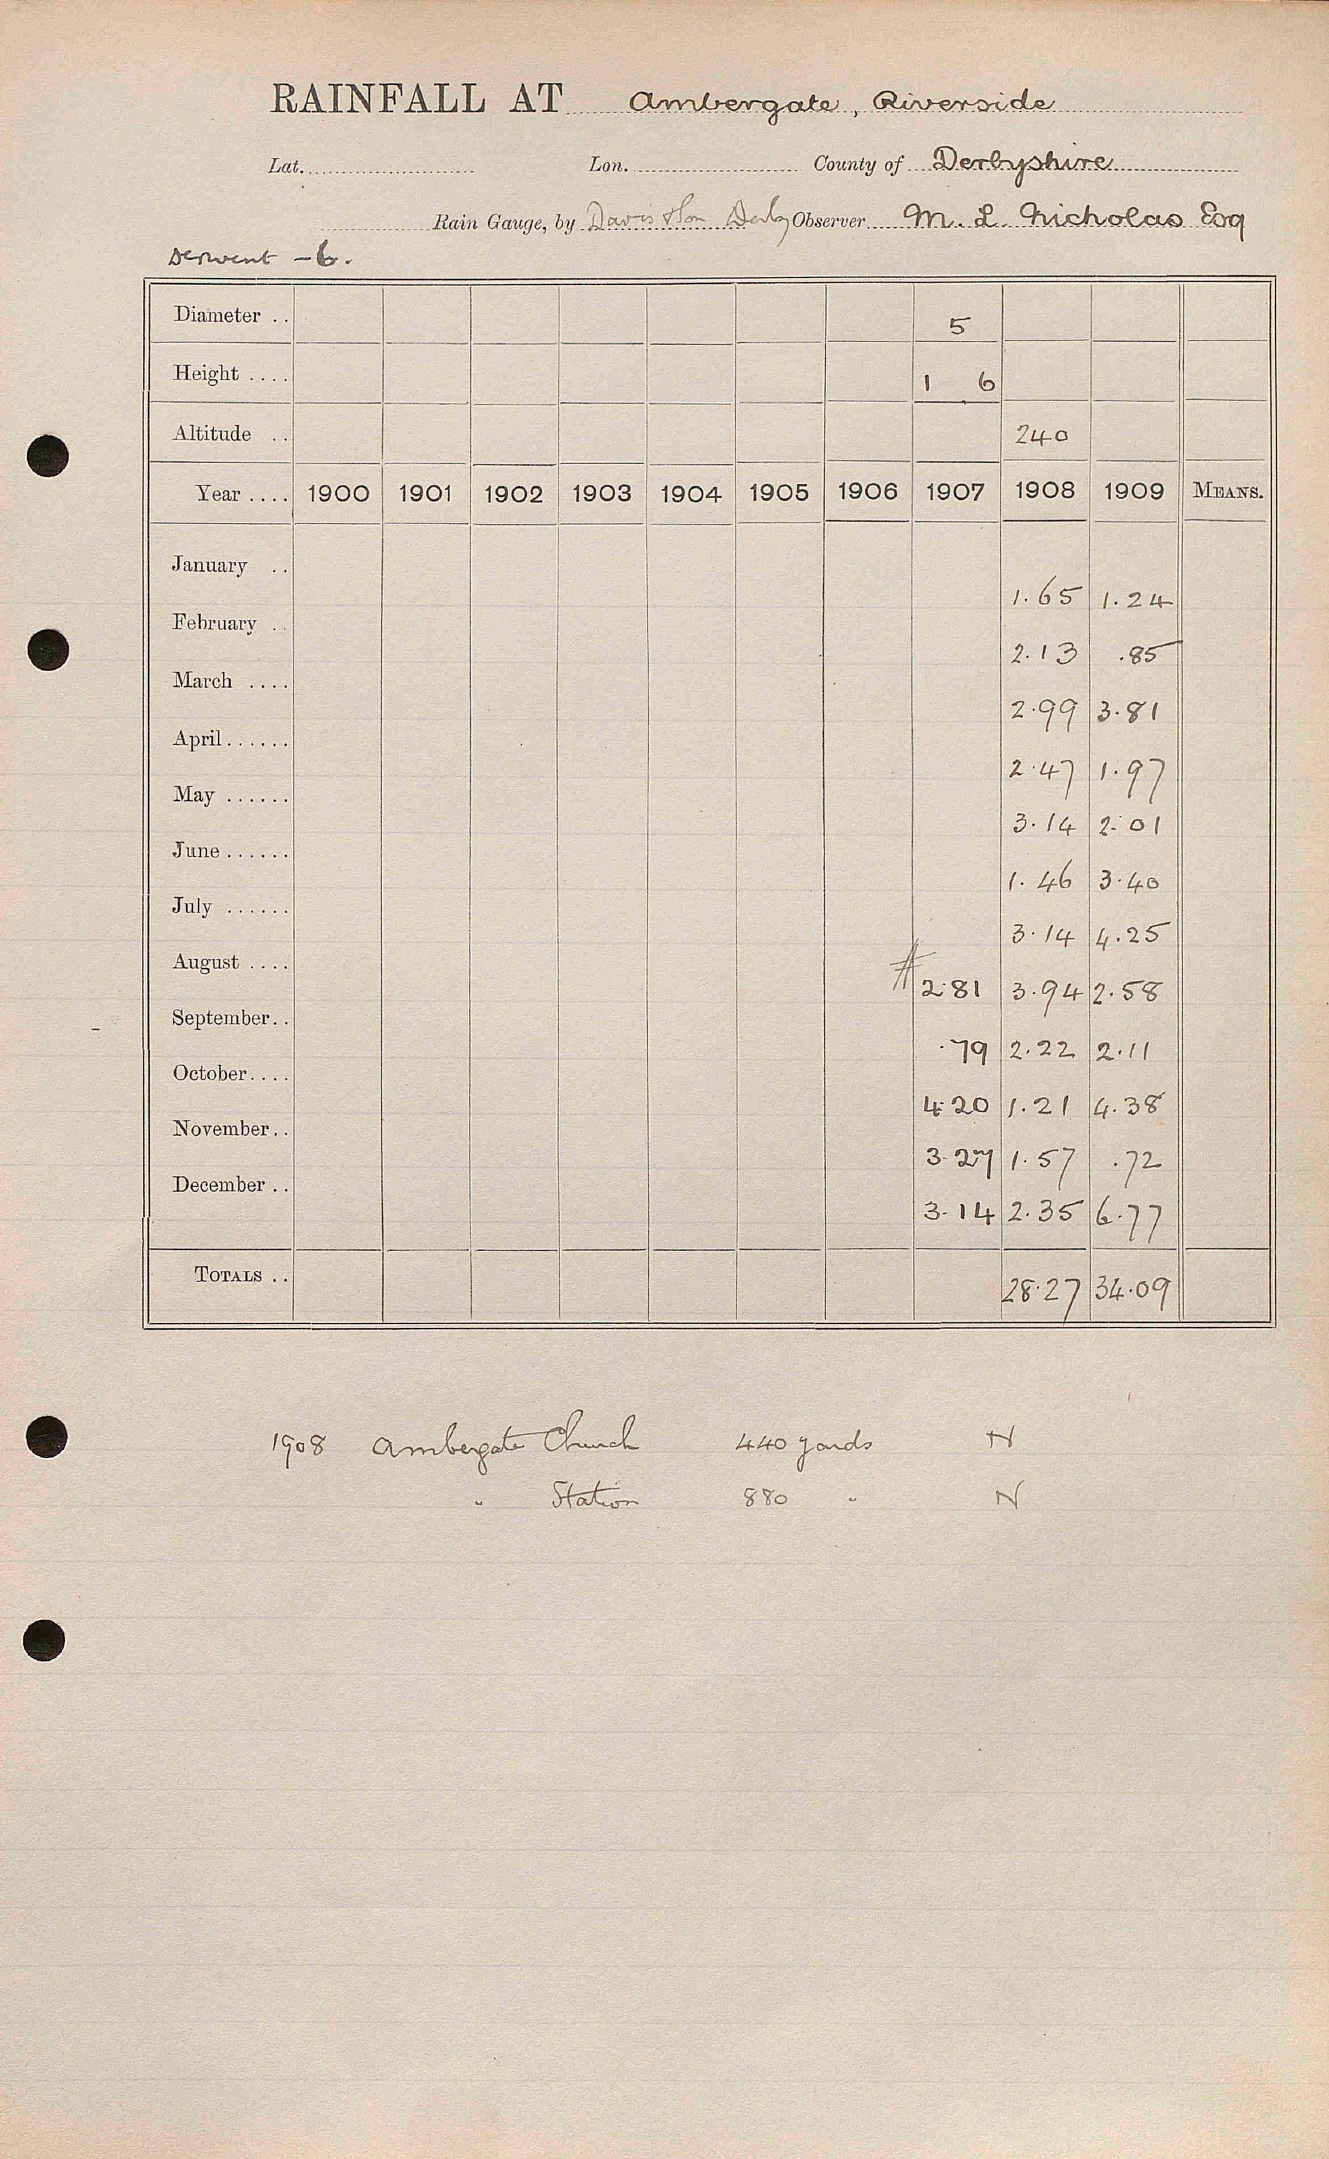 RAINFALL AT Ambergate, Riverside
Lat. Lon. County of Derbyshire
Rain Gauge, by Davis & Son Derby Observer M. L. Nicholas Esq
Derwent - 6.
Diameter .. 5
Height .... 1 6
Altitude .. 240
Year .... 1900 1901 1902 1903 1904 1905 1906 1907 1908 1909 MEANS.
January .. 1.65 1.24
February .. 2.13 .85
March .... 2.99 3.81
April...... 2.47 1.97
May ...... 3.14 2.01
June...... 1.46 3.40
July ...... 3.14 4.25
August .... # 2.81 3.94 2.58
September.. .79 2.22 2.11
October.... 4.20 1.21 4.38
November.. 3.27 1.57 .72
December.. 3.14 2.35 6.77
TOTALS .. 28.27 34.09
1908 Ambergate Church 440 yards N
" Station 880 " N